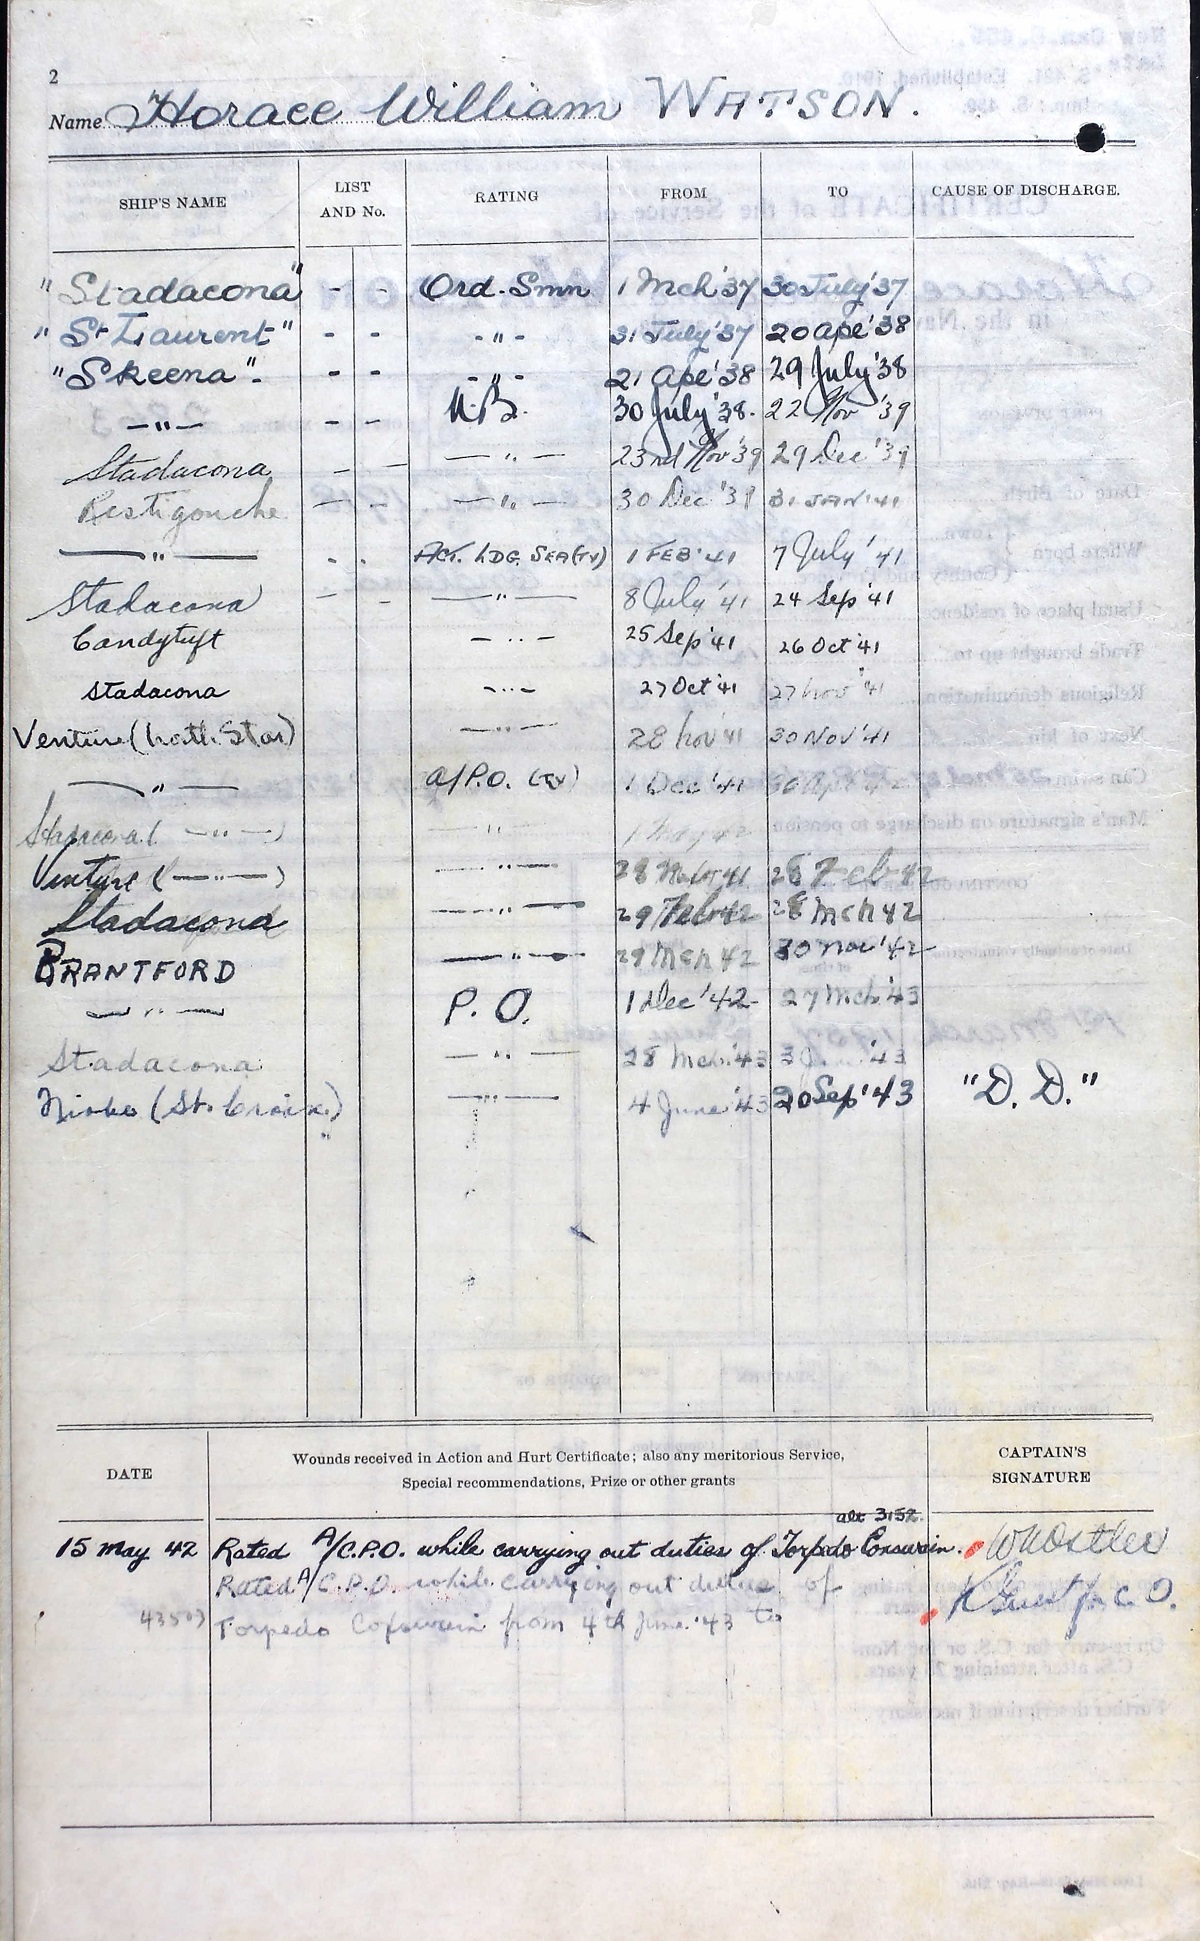 2
Name Horace William WATSON.
SHIP'S NAME LIST AND No. RATING FROM TO CAUSE OF DISCHARGE.
"Stadacona" - - Ord. Smn 1 Mch '37 30 July '37
"St Laurent" - - - " - 31 July '37 20 Ape '38
"Skeena". - - - " - 21 Ape '38 29 July '38
- " - - - A.B. 30 July '38. 22 Nov '39
Stadacona - - - " - 23rd Nov '39 29 Dec '39
Restigouche - - - " - 30 Dec '39 31 JAN '41
- " - - - Act. LDG. SEA(TY) 1 FEB '41 7 July '41
Stadacona - - - " - 8 July '41 24 Sep '41
Candytuft - " - 25 Sep '41 26 Oct '41
Stadacona - " - 27 Oct '41 27 Nov '41
Venture (North Star) - " - 28 Nov '41 30 Nov '41
- " - A/P.O. (Ty) 1 Dec '41
Stadacona ( - " - ) - " - 1 May 42
Venture ( - " - ) - " - 28 Nov 41 28 Feb 42
Stadacona - " - 29 Feb 42 28 Mch 42
BRANTFORD - " - 29 Mch 42 30 Nov '42
- " - P.O. 1 Dec '42 27 Mch '43
Stadacona - " - 28 Mch '43 3 '43
Niobe (St. Croix) - " - 4 June '43 20 Sep '43 "D.D."
DATE Wounds received in Action and Hurt Certificate; also any meritorious Service, CAPTAIN'S
Special recommendations, Prize or other grants SIGNATURE
alt 3152.
15 May 42 Rated A/C.P.O. while carrying out duties of Torpedo Coxswain.
Rated A/C.P.O. while carrying out duties of for C.O.
43503 Torpedo Coxswain from 4th June '43 to